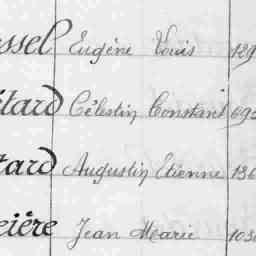 ssel Eugène Louis 129
tard Célestin Constant 693
tard Augustin Etienne 136
eière Jean Marie 1030